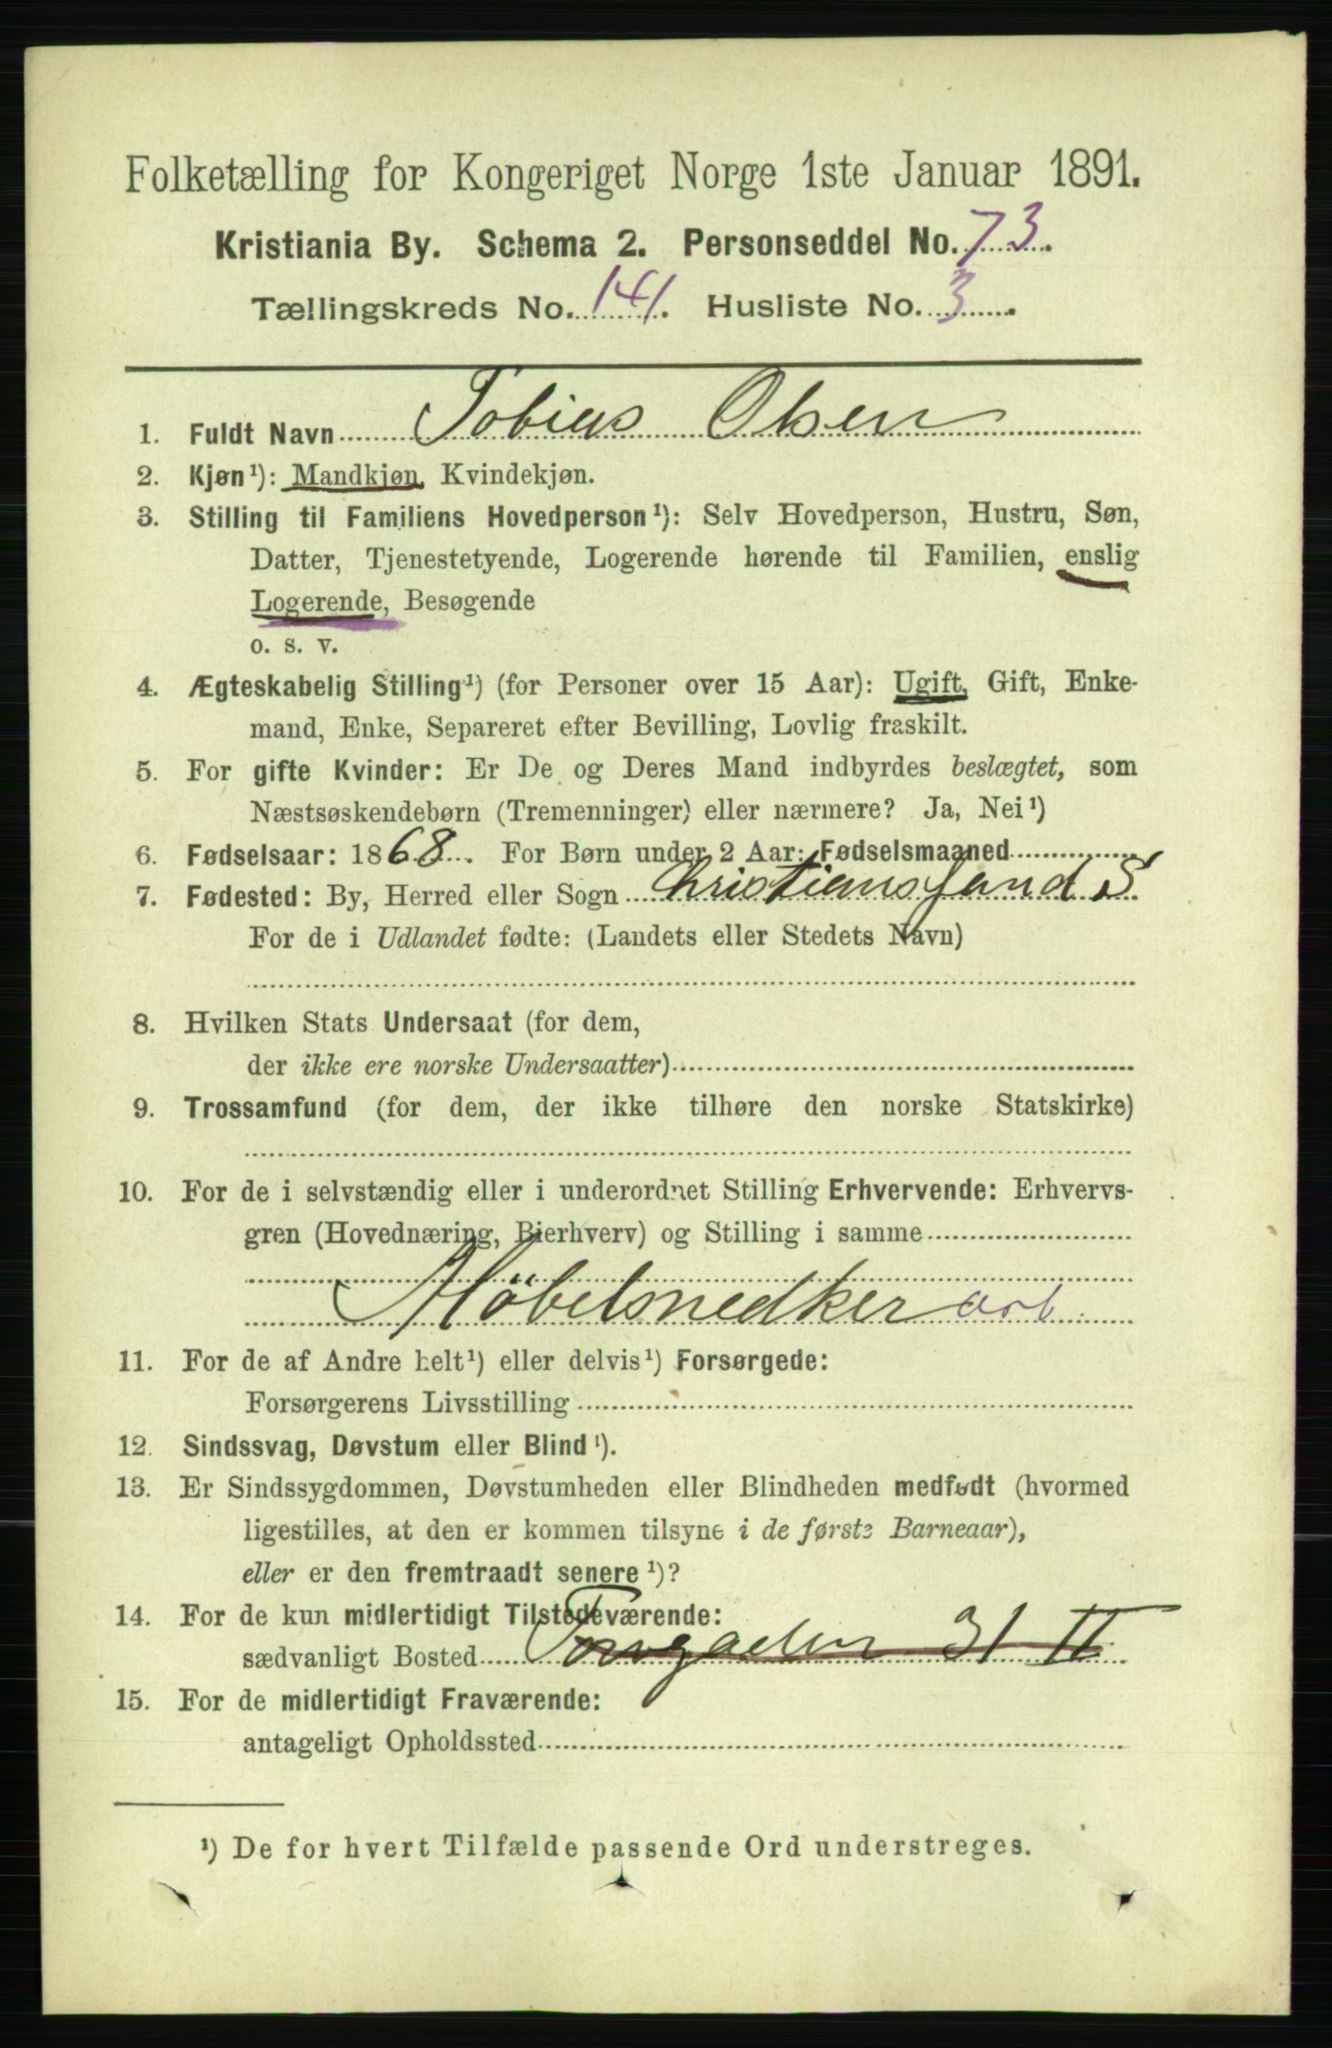 Folketælling for Kongeriget Norge 1ste Januar 1891.
Kristiania By. Schema 2. Personseddel No. 73.
Tællingskreds No. 141. Husliste No. 3.
1. Fuldt Navn Tobias Olsen
2. Kjøn¹): Mandkjøn, Kvindekjøn.
3. Stilling til Familiens Hovedperson¹): Selv Hovedperson, Hustru, Søn,
Datter, Tjenestetyende, Logerende hørende til Familien, enslig
Logerende, Besøgende
o. s. v.
4. Ægteskabelig Stilling¹) (for Personer over 15 Aar): Ugift, Gift, Enke-
mand, Enke, Separeret efter Bevilling, Lovlig fraskilt.
5. For gifte Kvinder: Er De og Deres Mand indbyrdes beslægtet, som
Næstsøskendebørn (Tremenninger) eller nærmere? Ja, Nei¹)
6. Fødselsaar: 1868. For Børn under 2 Aar: Fødselsmaaned
7. Fødested: By, Herred eller Sogn Christianssand S
For de i Udlandet fødte: (Landets eller Stedets Navn)
8. Hvilken Stats Undersaat (for dem,
der ikke ere norske Undersaatter)
9. Trossamfund (for dem, der ikke tilhøre den norske Statskirke)
10. For de i selvstændig eller i underordnet Stilling Erhvervende: Erhvervs-
gren (Hovednæring, Bierhverv) og Stilling i samme
Möbelsnedker arb.
11. For de af Andre helt¹) eller delvis¹) Forsørgede:
Forsørgerens Livsstilling
12. Sindssvag, Døvstum eller Blind¹).
13. Er Sindssygdommen, Døvstumheden eller Blindheden medfødt (hvormed
ligestilles, at den er kommen tilsyne i de første Barneaar),
eller er den fremtraadt senere¹)?
14. For de kun midlertidigt Tilstedeværende:
sædvanligt Bosted Torvgaden 31 II
15. For de midlertidigt Fraværende:
antageligt Opholdssted
¹) De for hvert Tilfælde passende Ord understreges.